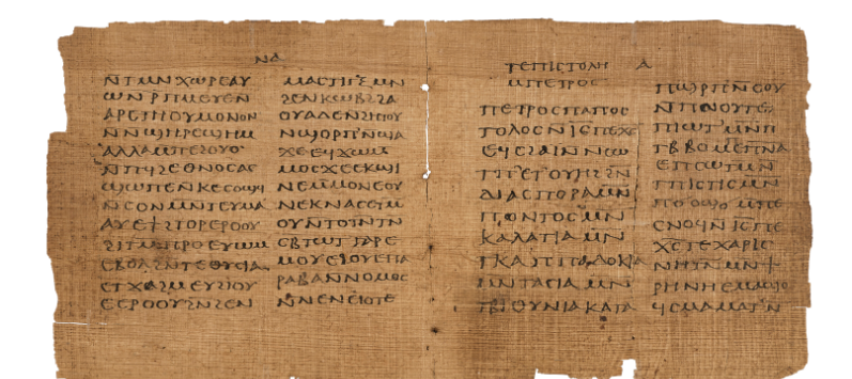 ⲛⲁ
ⲛ̄ⲧⲙⲛⲭⲱⲣⲉⲁⲩ
ⲱⲛⲣⲡⲙⲉⲩⲉⲛ̄
ⲁⲣⲉⲧⲏⲟⲩⲙⲟⲛⲟⲛ
ⲛ̄ⲛϣⲏⲣⲉϣⲏⲙ
ⲁⲗⲗⲁⲙⲡⲉϩⲟⲩⲟ
ⲙ̄ⲡϥϩⲉⲑⲛⲟⲥⲁⲥ
ⲛⲥⲟⲛⲙⲛⲧⲉⲩⲙⲁ
ⲁⲩⲉϯϩⲧⲟⲣⲉⲣⲟⲟⲩ
ϩⲓⲧⲙⲡⲣⲣⲟⲉⲩⲱⲙ
ⲉⲃⲟⲗϩⲛⲧⲉⲑⲩⲥⲓⲁ
ⲉⲧϫⲁϩⲙⲉⲩϩⲓⲟⲩ
ⲉⲉⲣⲟⲟⲩϩⲛϩⲉⲛ
ⲙⲁⲥⲧⲓⲅⲝⲙⲛ
ϩⲉⲛⲕⲱⲃϩϩⲁ
ⲟⲩⲁⲗⲉⲛϩⲏⲧⲟⲩ
ⲛϣⲟⲣⲡⲛϣⲁ
ϫⲉⲉϥϫⲱⲙ
ⲙⲟⲥϫⲉⲉⲕϣⲓ
ⲛⲉⲙⲙⲟⲛⲉⲟⲩ
ⲛⲉⲕⲛⲁⲥⲉⲧⲙ
ⲟⲩⲛ̄ⲧⲟⲓⲛⲧⲛ
ⲥⲃⲧⲱⲧⲅⲁⲣⲉ
ⲙⲟⲩⲉϩⲟⲩⲉⲡⲁ
ⲣⲁⲃⲁⲛ̄ⲛⲟⲙⲟⲥ
ⲛ̄ⲛⲉⲛⲉⲓⲟⲧⲉ
ⲧⲉⲡⲓⲥⲧⲟⲗⲏ ⲁ
ⲙⲡⲉⲧⲣⲟⲥ
ⲡⲉⲧⲣⲟⲥⲡⲁⲡⲟⲥ
ⲧⲟⲗⲟⲥⲛ̄ⲓ̅ⲥ̅ⲡⲉⲭⲥ̅
ⲉϥⲥϩⲁⲓⲛⲛⲥⲱ
ⲧⲡⲉⲧⲟⲩⲏϩϩⲛ
ⲇⲓⲁⲥⲡⲟⲣⲁⲙⲛ̄
ⲡⲟⲛⲧⲟⲥⲙⲛ̄
ⲕⲁⲗⲁⲧⲓⲁⲙⲛ̄
ⲧⲕⲁⲡⲡⲁⲇⲟⲕⲓⲁ
ⲙⲛⲧⲁⲥⲓⲁⲙⲛ
ⲧⲃⲓⲑⲩⲛⲓⲁⲕⲁⲧⲁ
ⲡϣⲣⲡⲛ̄ⲥⲟⲩ
ⲛ̄ⲡⲛⲟⲩⲧⲉ
ⲡⲓⲱⲧϩⲙⲡ
ⲧⲃⲃⲟⲙⲡⲉⲡⲛⲁ
ⲉⲡⲥⲱⲧⲙⲛ
ⲧⲡⲓⲥⲧⲓⲥⲙⲛ
ⲡⲟⲩⲱϣⲙⲡⲉ
ⲥⲛⲟϥⲛ̄ⲓ̅ⲥ̅ⲡⲉ
ⲭⲥ̅ⲧⲉⲭⲁⲣⲓⲥ
ⲛⲏⲧⲛⲙⲛϯ
ⲣⲏⲛⲏⲉⲙⲁϣⲟ
ϥⲥⲙⲁⲙⲁⲧⲛ